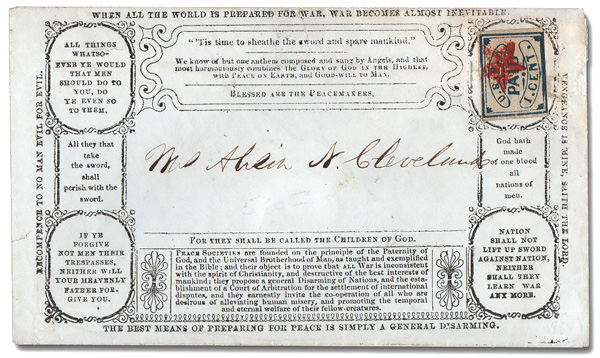 WHEN ALL THE WORLD IS PREPARED FOR WAR, WAR BECOMES ALMOST INEVITABLE.
ALL THINGS
WHATSO-
EVER YE WOULD
THAT MEN
SHOULD DO TO
YOU, DO
YE EVEN SO
TO THEM.
"'Tis time to sheathe the sword and spare mankind."
We know of but one anthem composed and sung by Angels, and that
most harmoniously combines the GLORY OF GOD IN THE HIGHEST,
WITH PEACE ON EARTH, AND GOOD-WILL TO MAN.
BLESSED ARE THE PEACEMAKERS,
PAID
1 CENT
RECOMPENCE TO NO MAN EVIL FOR EVIL.
All they that
take the
sword,
shall
perish with the
sword.
Cleveland
God hath
made
of one blood
all
nations of
men.
VENGEANCE IS MINE, SAITH THE LORD.
IF YE
FORGIVE
NOT MEN THEIR
TRESPASSES,
NEITHER WILL
YOUR HEAVENLY
FATHER FOR-
GIVE YOU.
FOR THEY SHALL BE CALLED THE CHILDREN OF GOD.
PEACE SOCIETIES are founded on the principle of the Paternity of
God, and the Universal Brotherhood of Man, as taught and exemplified
in the Bible; and their object is to prove that ALL War is inconsistent
with the spirit of Christianity, and destructive of the best interests of
mankind: they propose a general Disarming of Nations, and the esta-
blishment of a Court of Arbitration for the settlement of international
disputes, and they earnestly invite the co-operation of all who are
desirous of alleviating human misery, and promoting the temporal
and eternal welfare of their fellow-creatures.
NATION
SHALL NOT
LIFT UP SWORD
AGAINST NATION,
NEITHER
SHALL THEY
LEARN WAR
ANY MORE.
THE BEST MEANS OF PREPARING FOR PEACE IS SIMPLY A GENERAL DISARMING.